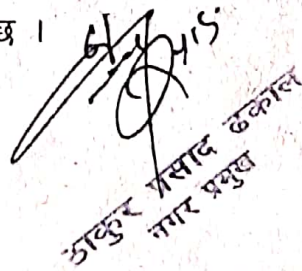 छ ।
ठाकुर प्रसाद ढकाल
नगर प्रमुख